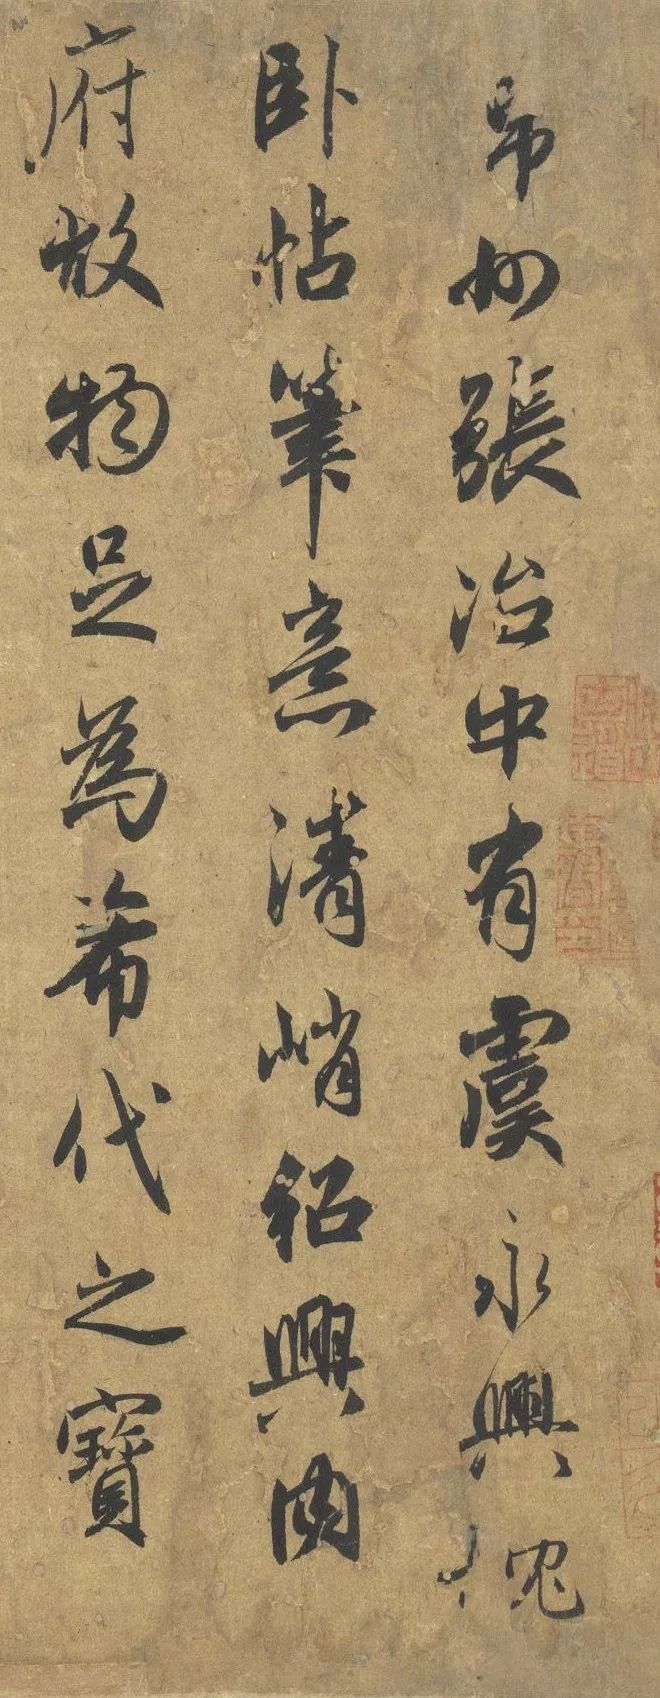 州張治中有虞永興枕
卧帖筆意清峭紹興内
府故物足為希代之寶